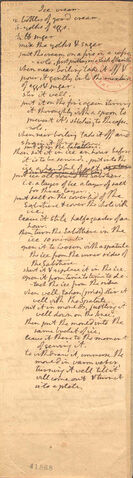 Ice cream.
2 bottles of good cream.
6 yolks of eggs.
1/2 lb sugar
mix the yolks & sugar
put the cream on a fire in a casse-
role, first putting in a stick of Vanilla.
when near boiling take it off &
pour it gently into the mixture
of eggs & sugar.
stir it well.
put it on the fire again stirring
it thoroughly with a spoon to
prevent it's sticking to the casse-
role.
when near boiling take it off and
strain it thro' a towel.
put it in the Sabottiere
then set it in ice an hour before
it is to be served. put into the
ice a handful of salt.
put salt on the coverlid of the
Sabotiere & cover the whole with
ice.
leave it still half a quarter of an
hour.
then turn the Sabottiere in the
ice 10 minutes
open it to loosen with a spatula
the ice from the inner sides of
the Sabotiere.
shut it & replace it in the ice
open it from time to time to de-
tach the ice from the sides
when well taken (prise) stir it
well with the Spatula.
put it in moulds, justling it
well down on the knee.
then put the mould into the
same bucket of ice.
leave it there to the moment
of serving it.
to withdraw it, immerse the
mould in warm water,
turning it well till it
will come out & turn it
into a plate.
41868